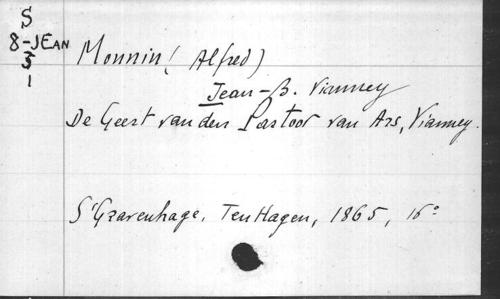 S
8-JEAN
3
1
Monnin (Alfred)
Jean-B. Vianney
De Geest van den Pastoor van Ars, Vianney.
S'Gravenhage, Ten Hagen, 1865, 16°